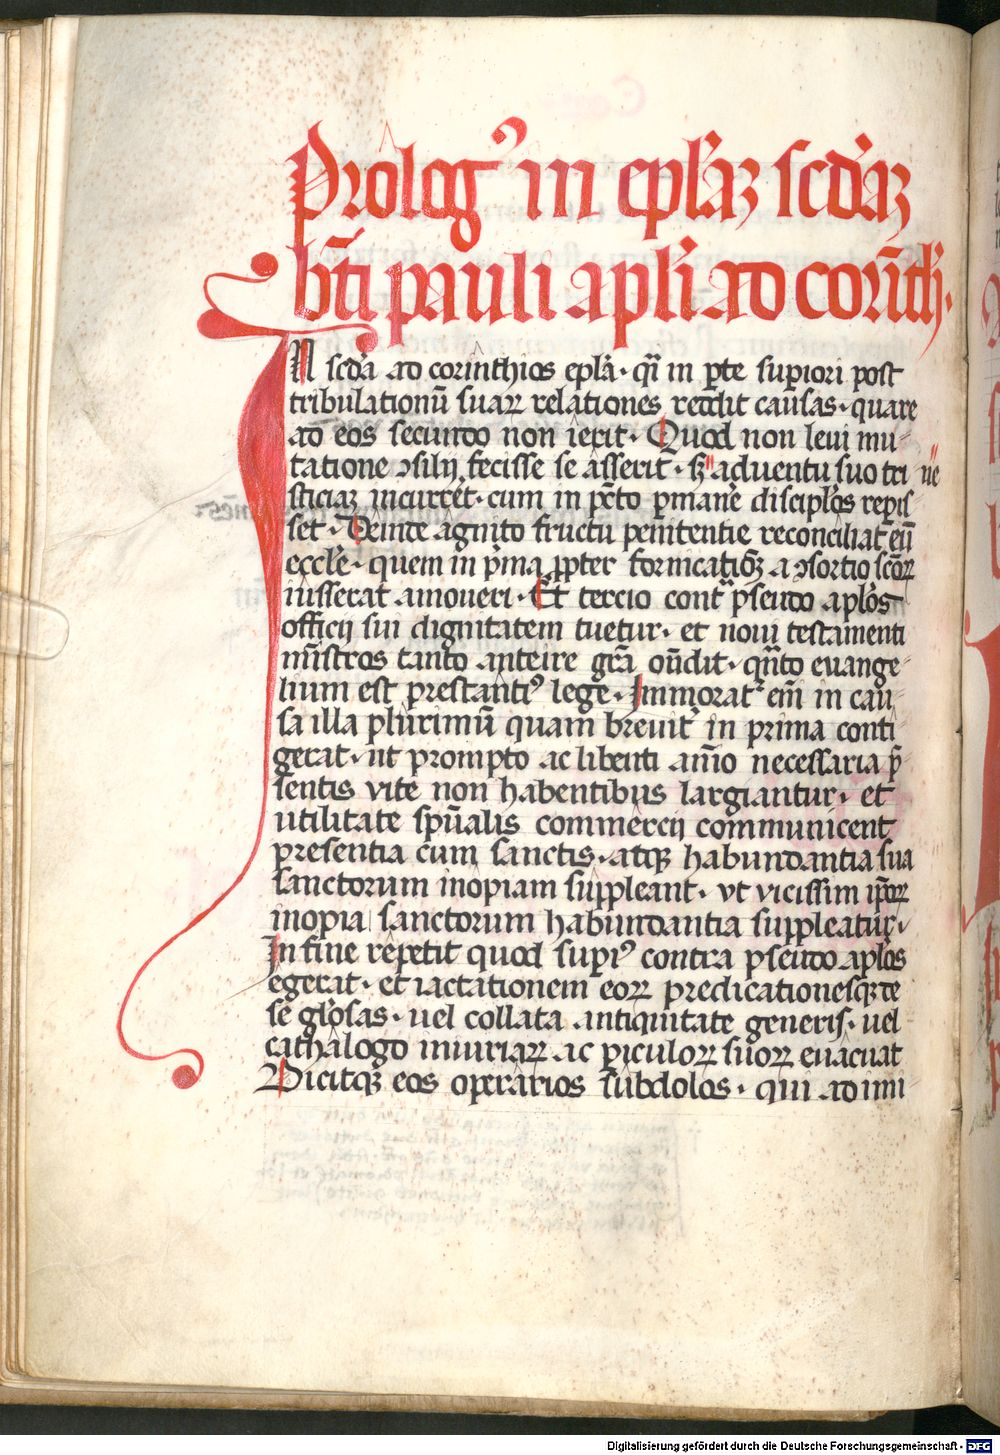 Prologꝰ in ep̄laꝫ scd̓aꝫ
bt̄i pauli ap̄li ad corint̄h.
IN scd̓a ad corinthios ep̄la · qͥ in ꝑte supiori post
tribulationū suaꝝ relationes reddit causas · quare
ad eos secundo non ierit · Quod non leui mu⸗
tatione ꝯsilij fecisse se asserit · sꝫ aduentu suo tri ne
sticiaꝫ incurrēt · cum in pc̄to ꝑmanēe disciplōs repis
set · Deinde agnito fructu penitentie reconciliat eū
eccl̄e · quem in pͥma ꝓpter fornicatiōꝫ a ꝯsortio sc̄oꝝ
iusserat amoueri · Et tercio contͣ pseudo apl̄os
officij sui dignitatem tuetur · et noui testamenti
mīstros tanto anteire grā oñdit · qͣnto euange⸗
lium est prestantiꝰ lege · Immorat᷑ em̄ in cau⸗
sa illa plurimū quam breuit᷑ in prima conti
gerat · ut prompto ac libenti aīo necessaria p̄
sentis vite non habentibus largiantur · et
utilitate spūalis commercij communicent
presentia cum sanctis · atqꝫ habundantia sua
sanctorum inopiam suppleant · vt vicissim ip̄oꝝ
inopia sanctorum habundantia suppleatur ·
In fine repetit quod supiꝰ contra pseudo apl̄os
egerat · et iactationem eoꝝ predicationesqꝫ de
se gl̄osas · uel collata antiquitate generis · uel
cathalogo iniuriaꝝ ac ꝑiculoꝝ suoꝝ euacuat
Dicitqꝫ eos operarios subdolos · qui ad imi
Digitalisierung gefördert durch die Deutsche Forschungsgemeinschaft - DFG